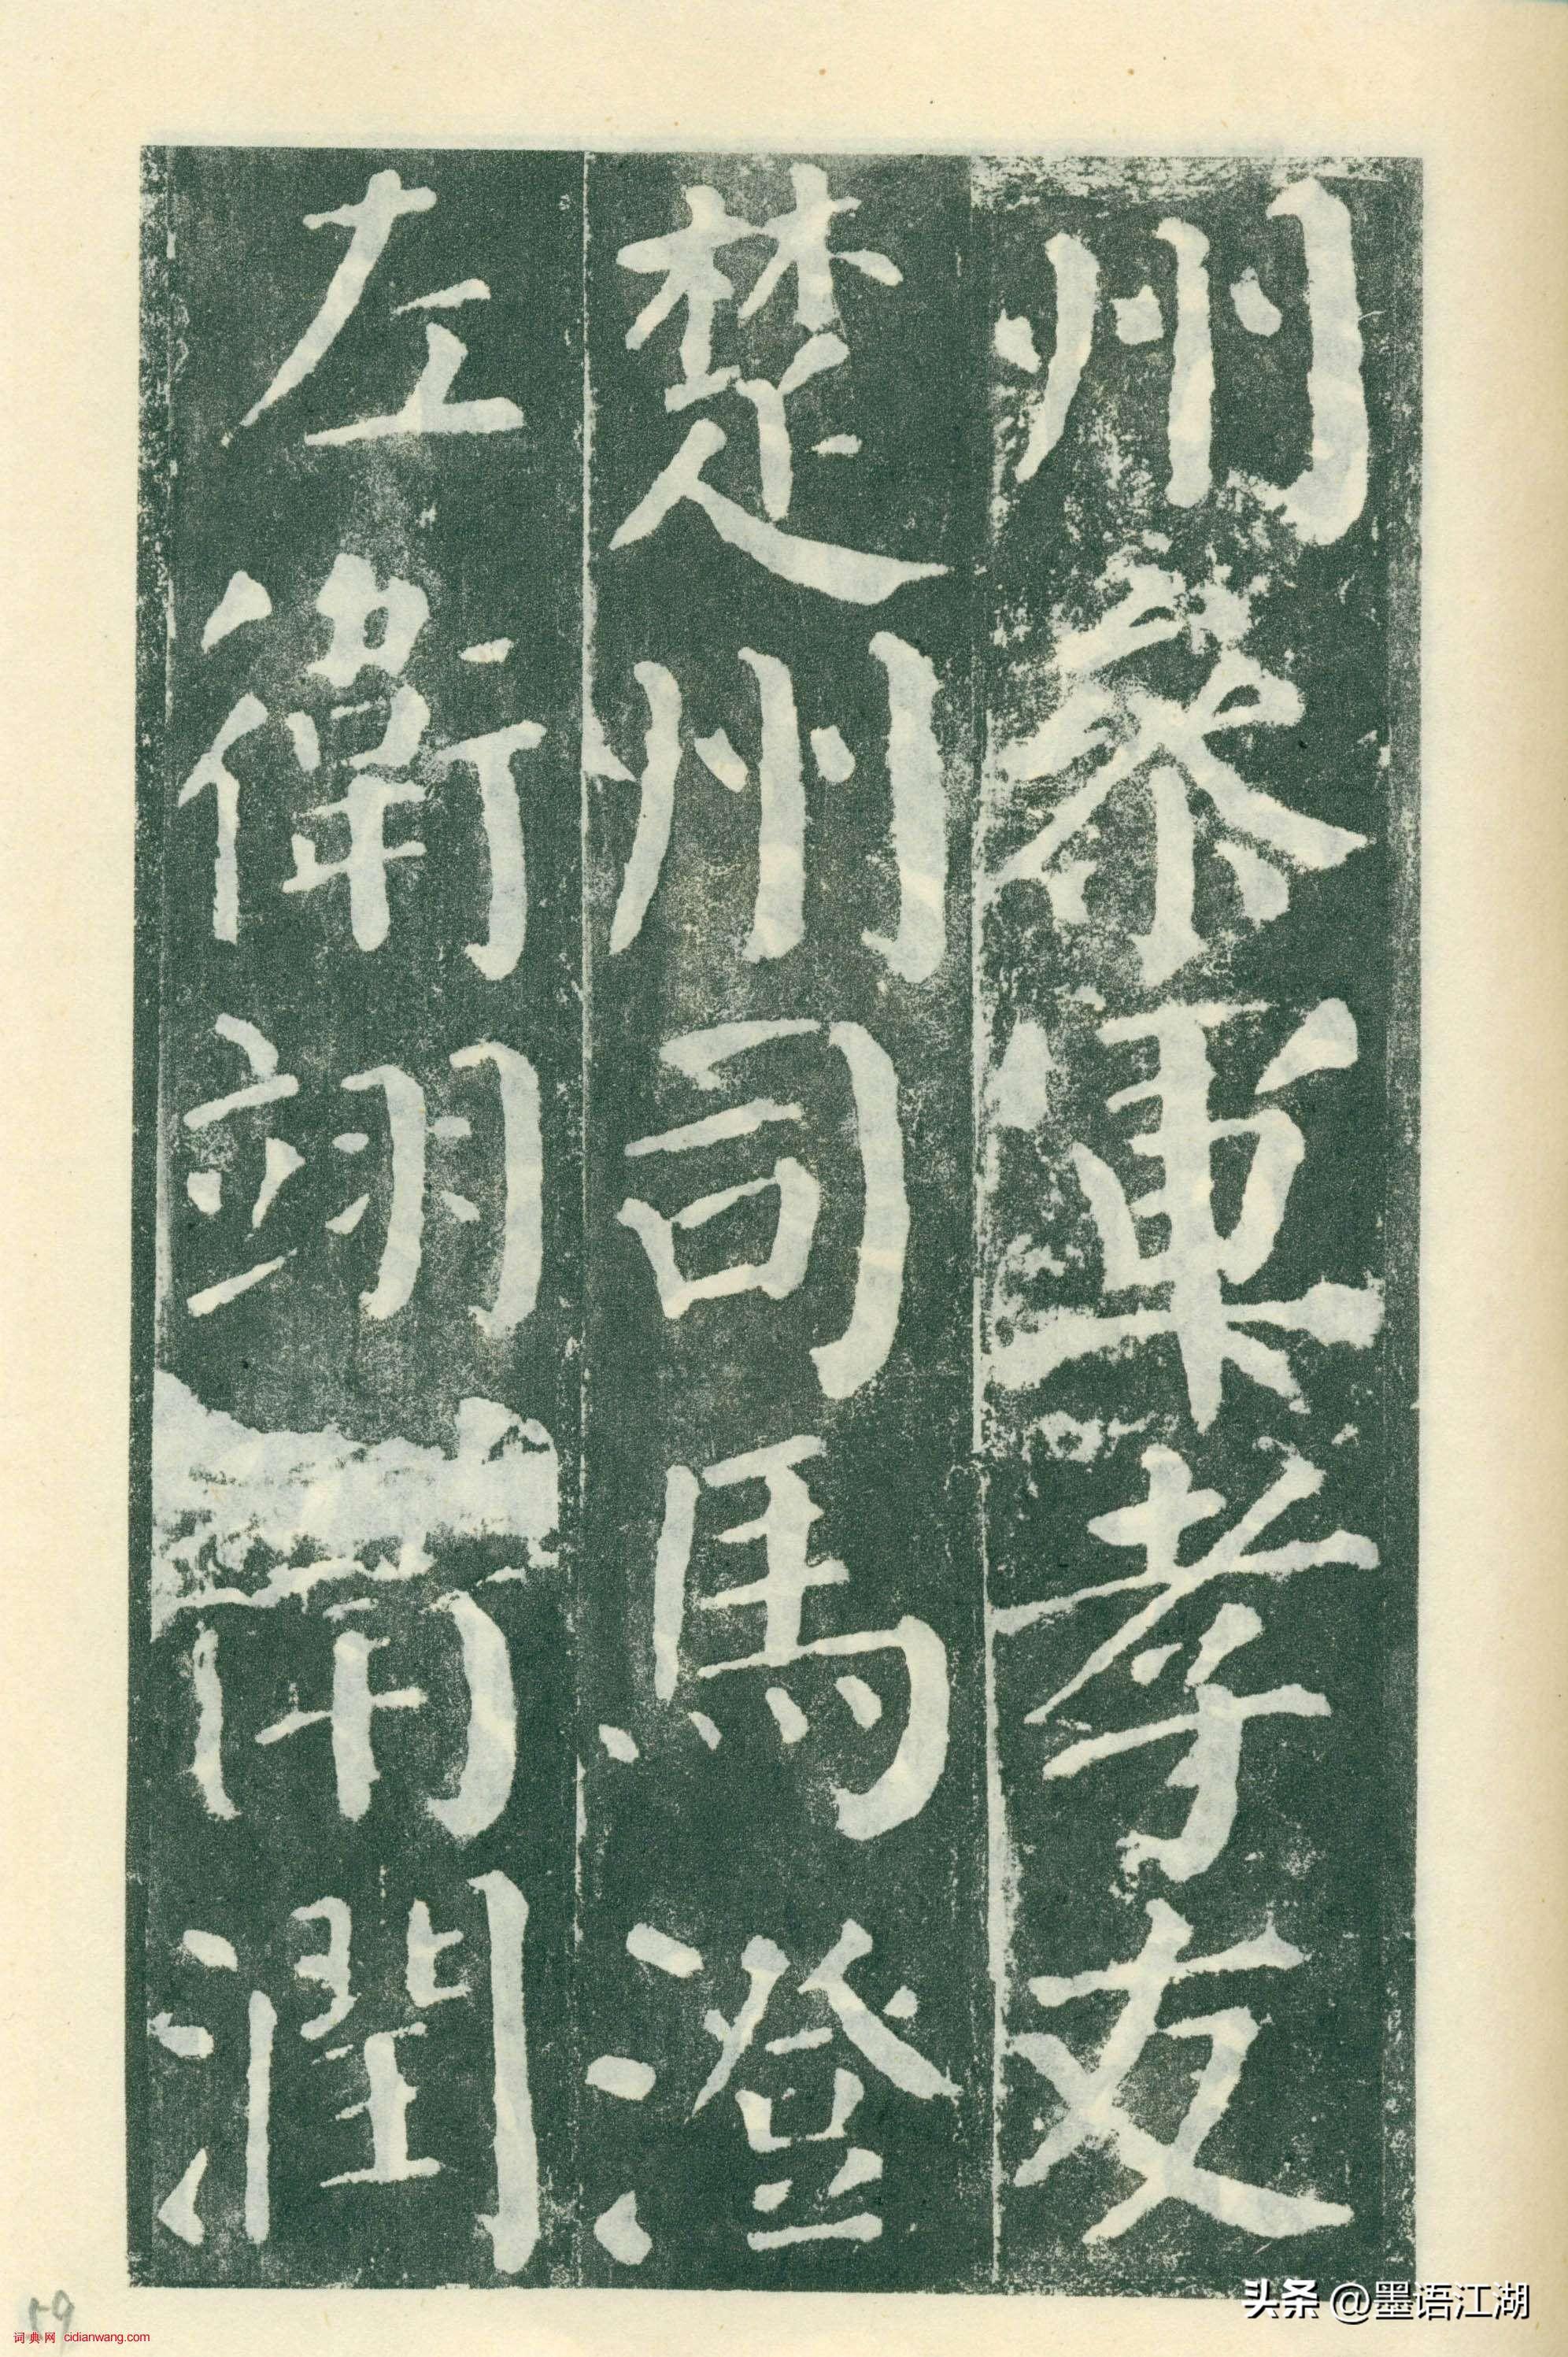 州參軍孝友
楚州司馬澄
左衛翊
潤
59
词典网 cidianwang.com
头条 @墨语江湖